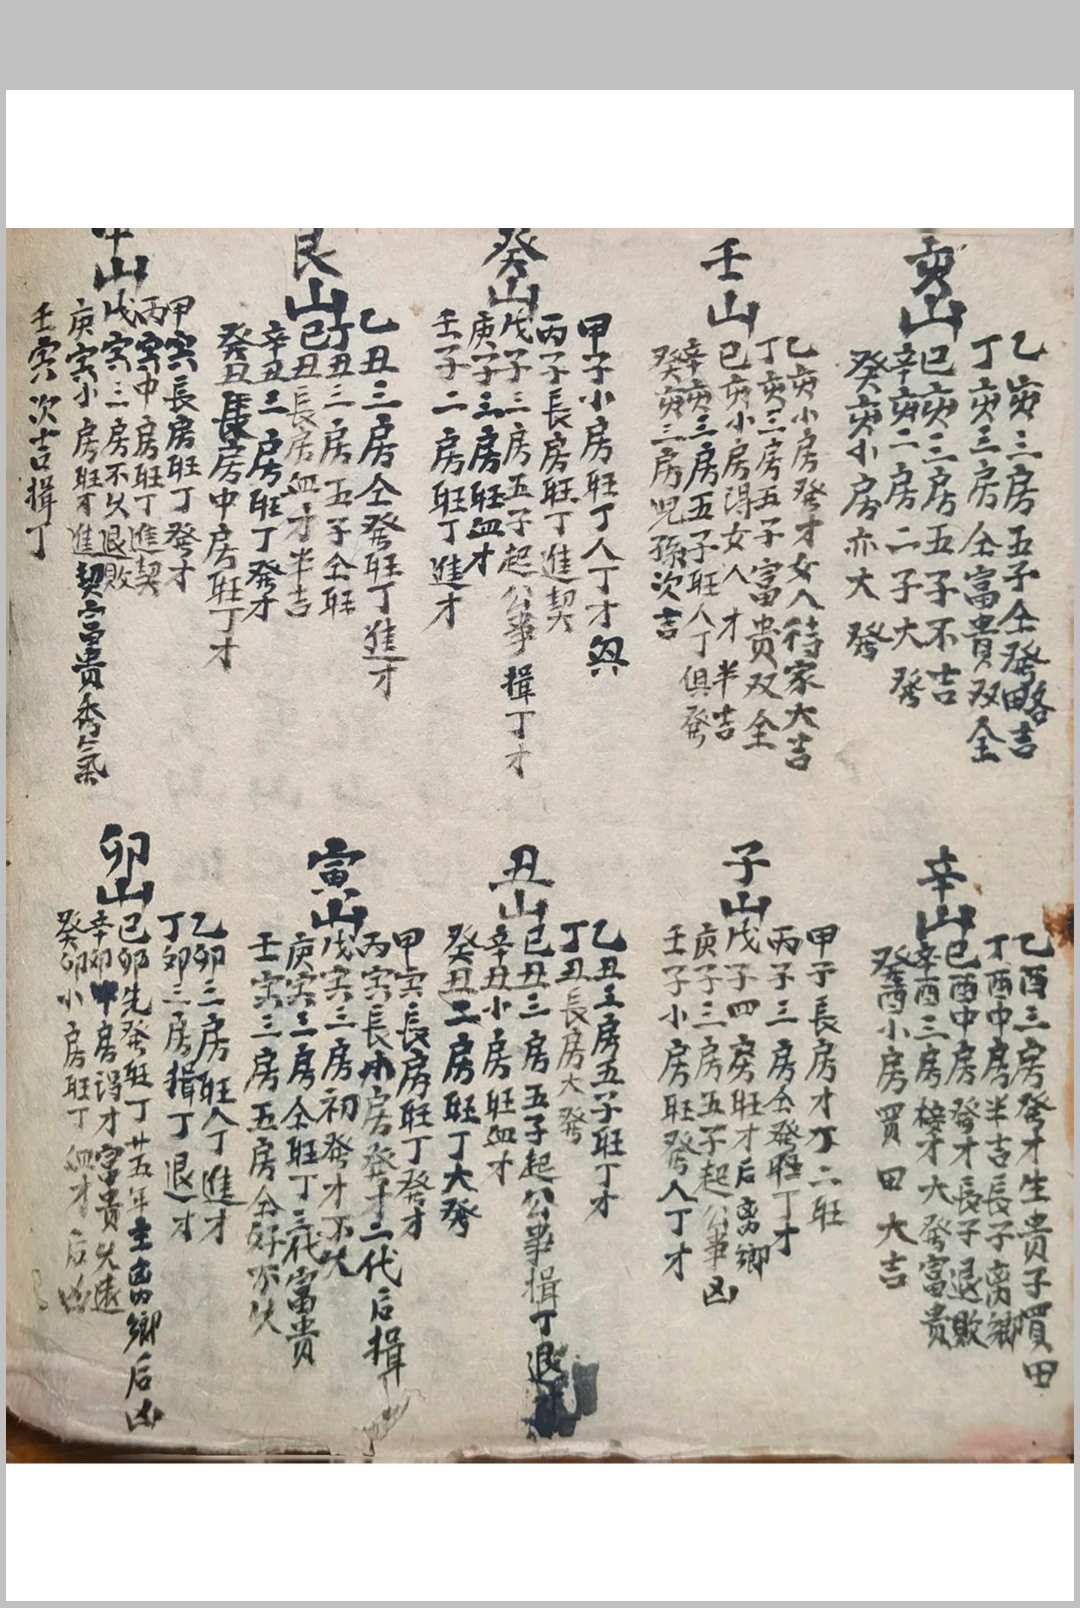 亥山
乙亥三房五子仝發略吉
丁亥三房仝富貴双全
巳亥三房五子不吉
辛亥二房二子大發
癸亥小房亦大發
壬山
乙亥小房發才女人待家大吉
丁亥三房五子富貴双全
巳亥小房得女人才半吉
辛亥三房五子旺人丁俱發
癸亥三房児孫次吉
癸山
甲子小房旺丁人丁才
丙子長房旺丁進契
戊子三房五子起公事揖丁才
庚子三房旺血才
壬子二房旺丁進才
艮山
乙丑三房仝發旺丁進才
丁丑三房五子仝旺
巳丑長房血才半吉
辛丑三房旺丁發才
癸丑長房中房旺丁才
山
甲寅長房旺丁發才
丙寅中房旺丁進契
戊寅三房不久退敗
庚寅小房旺才進契富貴秀氣
壬寅次吉揖丁
辛山
乙酉三房發才生貴子買田
丁酉中房半吉長子离鄉
巳酉中房發才長子退敗
辛酉三房才大發富貴
癸酉小房買田大吉
子山
甲子長房才丁二旺
丙子三房仝發旺丁才
戊子四房旺才后离鄉
庚子三房五子起公事凶
壬子小房旺發人丁才
丑山
乙丑三房五子旺丁才
丁丑長房大發
巳丑三房五子起公事揖丁退
辛丑小房旺血才
癸丑二房旺丁大發
寅山
甲寅長房旺丁發才
丙寅長小房發才二代后揖
戊寅三房初發才不久
庚寅三房仝旺丁三代富貴
壬寅三房五房仝好不久
卯山
乙卯三房旺人丁進才
丁卯三房揖丁退才
巳卯先發旺丁廿五年主离鄉后凶
辛卯中房得才富貴久遠
癸卯小房旺丁血才后凶